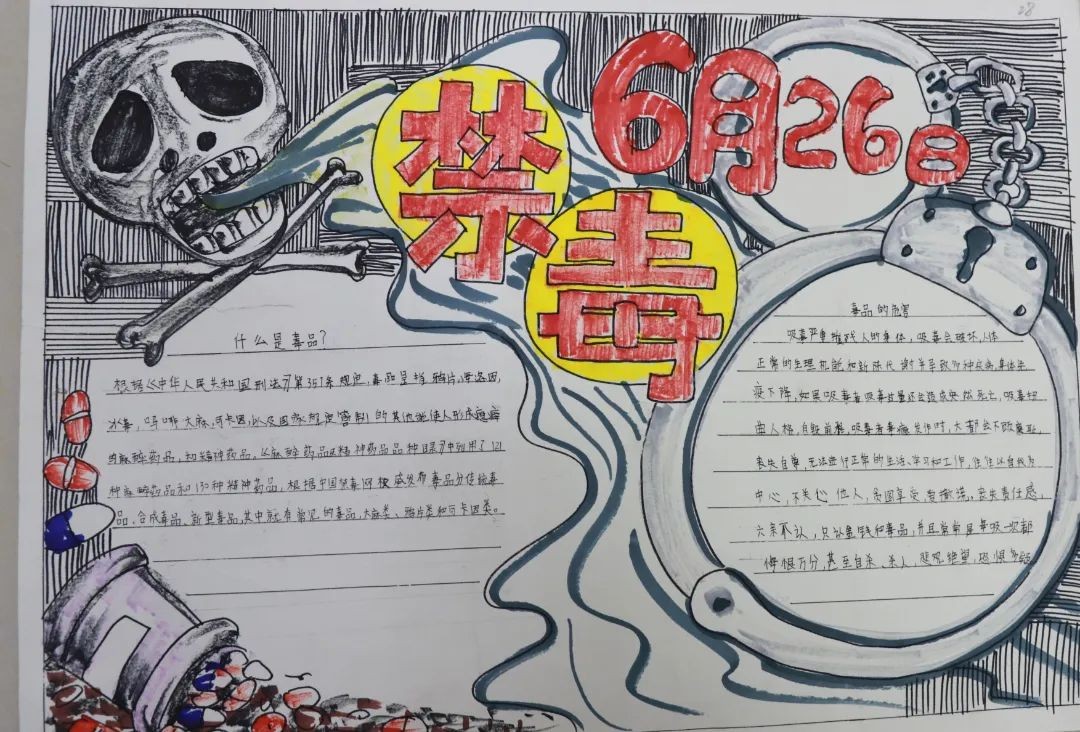 28
6月26日
禁毒
什么是毒品?
根据《中华人民共和国刑法》第357条规定,毒品是指鸦片,海洛因,
冰毒,吗啡大麻,可卡因,以及国家规定管制的其他能使人形成瘾癖
的麻醉药品,和精神药品,《麻醉药品及精神药品品种目录》中列明了121
种麻醉药品和130种精神药品,根据中国禁毒网权威发布毒品分传统毒
品,合成毒品,新型毒品,其中就有常见的毒品,大麻类,鸦片类和可卡因类。
毒品的危害
吸毒严重摧残人的身体,吸毒会破坏人体
正常的生理机能和新陈代谢并导致多种疾病,身体免
疫下降,如果吸毒者吸毒过量还会造成突然死亡,吸毒扭
曲人格,自毁前程,吸毒者毒瘾发作时,大都会不顾廉耻,
丧失自尊,无法进行正常的生活、学习和工作,往往以自我为
中心,不关心他人,贪图享受,爱撒谎,丧失责任感,
六亲不认,只认金钱和毒品,并且常常是毒吸一次都
悔恨万分,甚至自杀、杀人,悲观绝望,